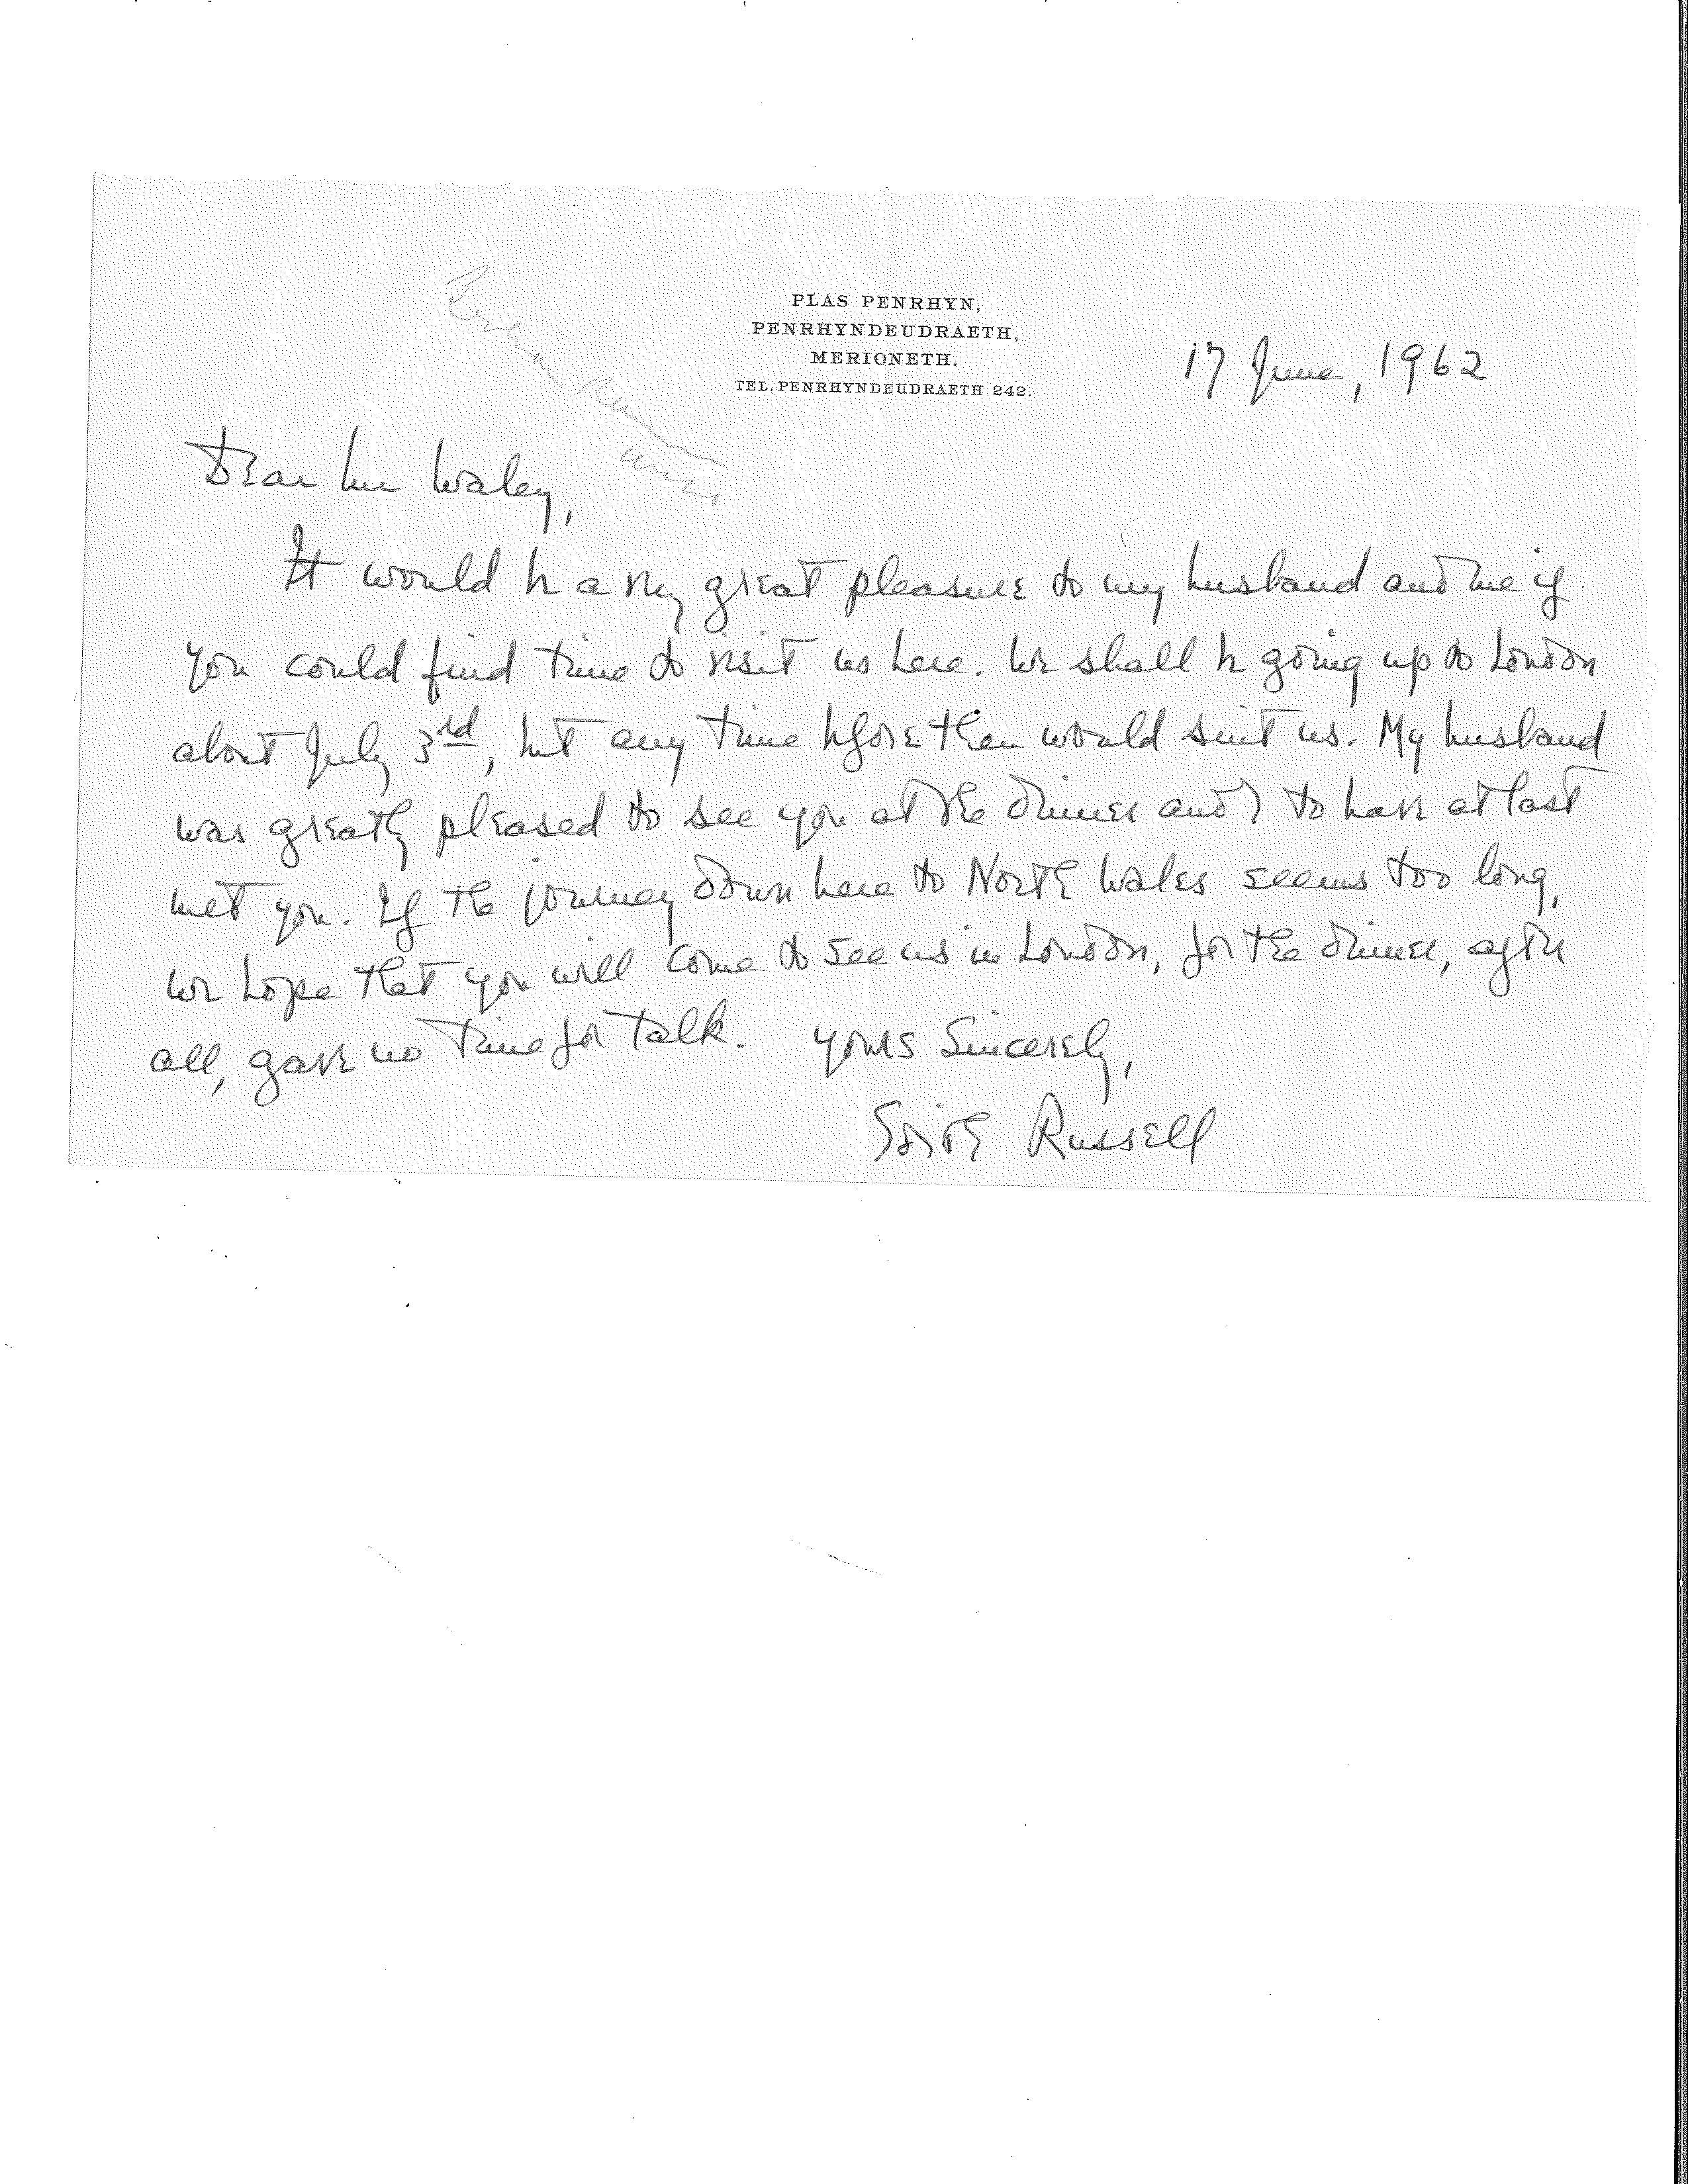 PLAS PENRHYN,
PENRHYNDEUDRAETH,
MERIONETH.
TEL. PENRHYNDEUDRAETH 242.
17 June, 1962
Dear Mr Waley,
It would be a very great pleasure to my husband and me if
you could find time to visit us here. We shall be going up to London
about July 3rd, but any time before then would suit us. My husband
was greatly pleased to see you at the dinner and I to have at last
met you. If the journey down here to North Wales seems too long,
we hope that you will come to see us in London, for the dinner, after
all, gave no time for talk. Yours sincerely,
Edith Russell